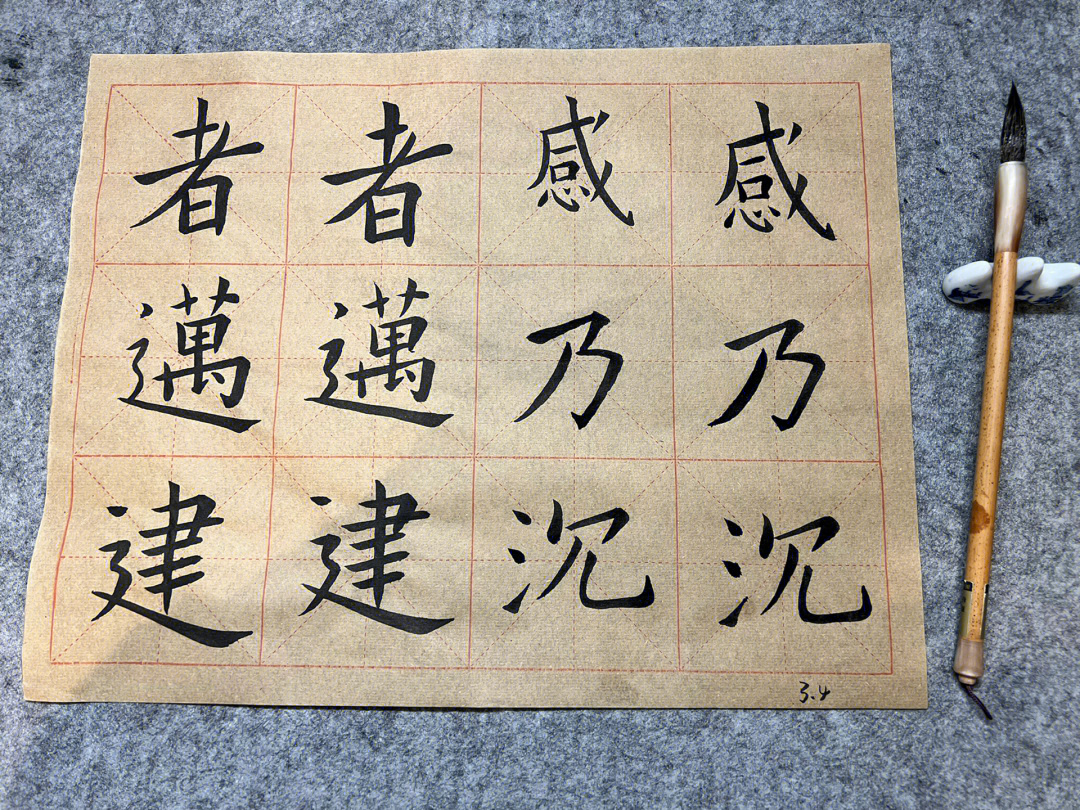 者者感感
邁邁乃乃
建建沉沉
3.4